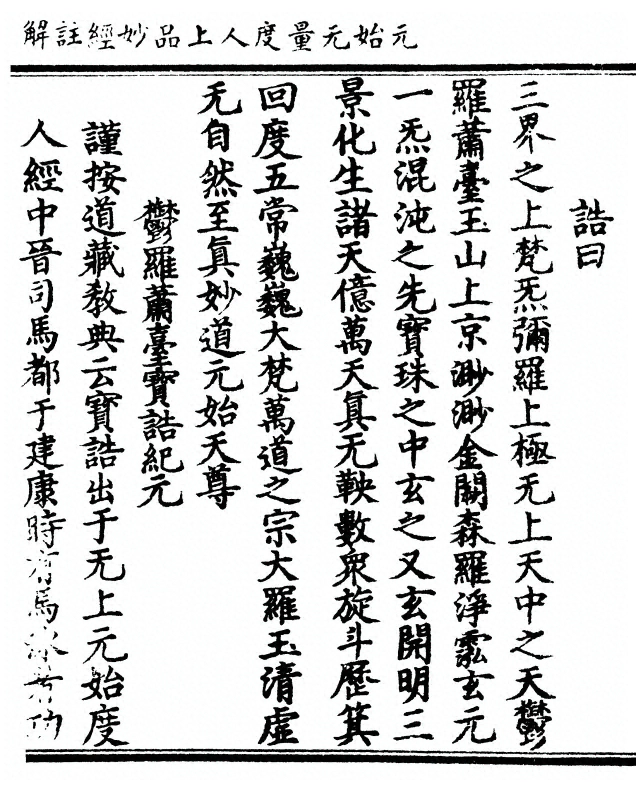 元始无量度人上品妙經註解
誥曰
三界之上梵炁彌羅上極无上天中之天鬱
羅蕭臺玉山上京渺渺金闕森羅淨霐玄元
一炁混沌之先寶珠之中玄之又玄開明三
景化生諸天億萬天眞无鞅數衆旋斗歷箕
回度五常巍巍大梵萬道之宗大羅玉清虛
无自然至眞妙道元始天尊
鬱羅蕭臺寶誥紀元
謹按道藏敎典云寶誥出于无上元始度
人經中晉司馬都于建康時有馬